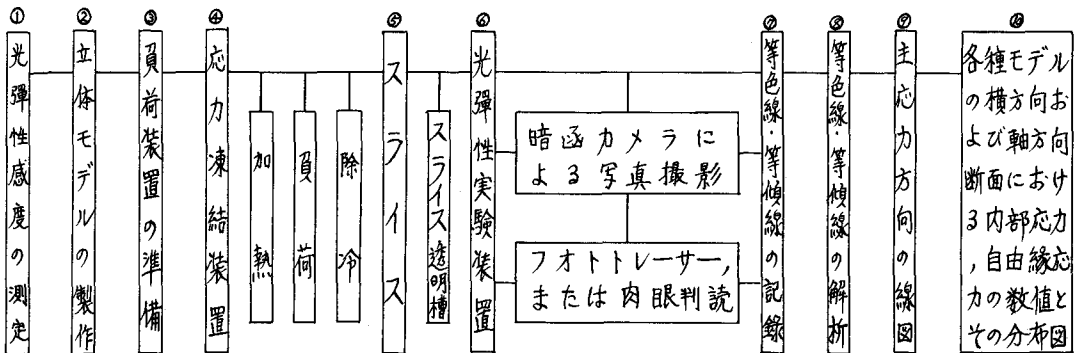 ①
光弾性感度の測定
②
立体モデルの製作
③
負荷装置の準備
④
応力凍結装置
加熱
負荷
除冷
⑤
スライス
スライス透明槽
⑥
光弾性実験装置
暗函カメラに
よる写真撮影
フオトトレーサー,
または肉眼判読
⑦
等色線・等傾線の記録
⑧
等色線・等傾線の解析
⑨
主応力方向の線図
⑩
各種モデル
の横方向お
よび軸方向
断面におけ
る内部応力
,自由縁応
力の数値と
その分布図